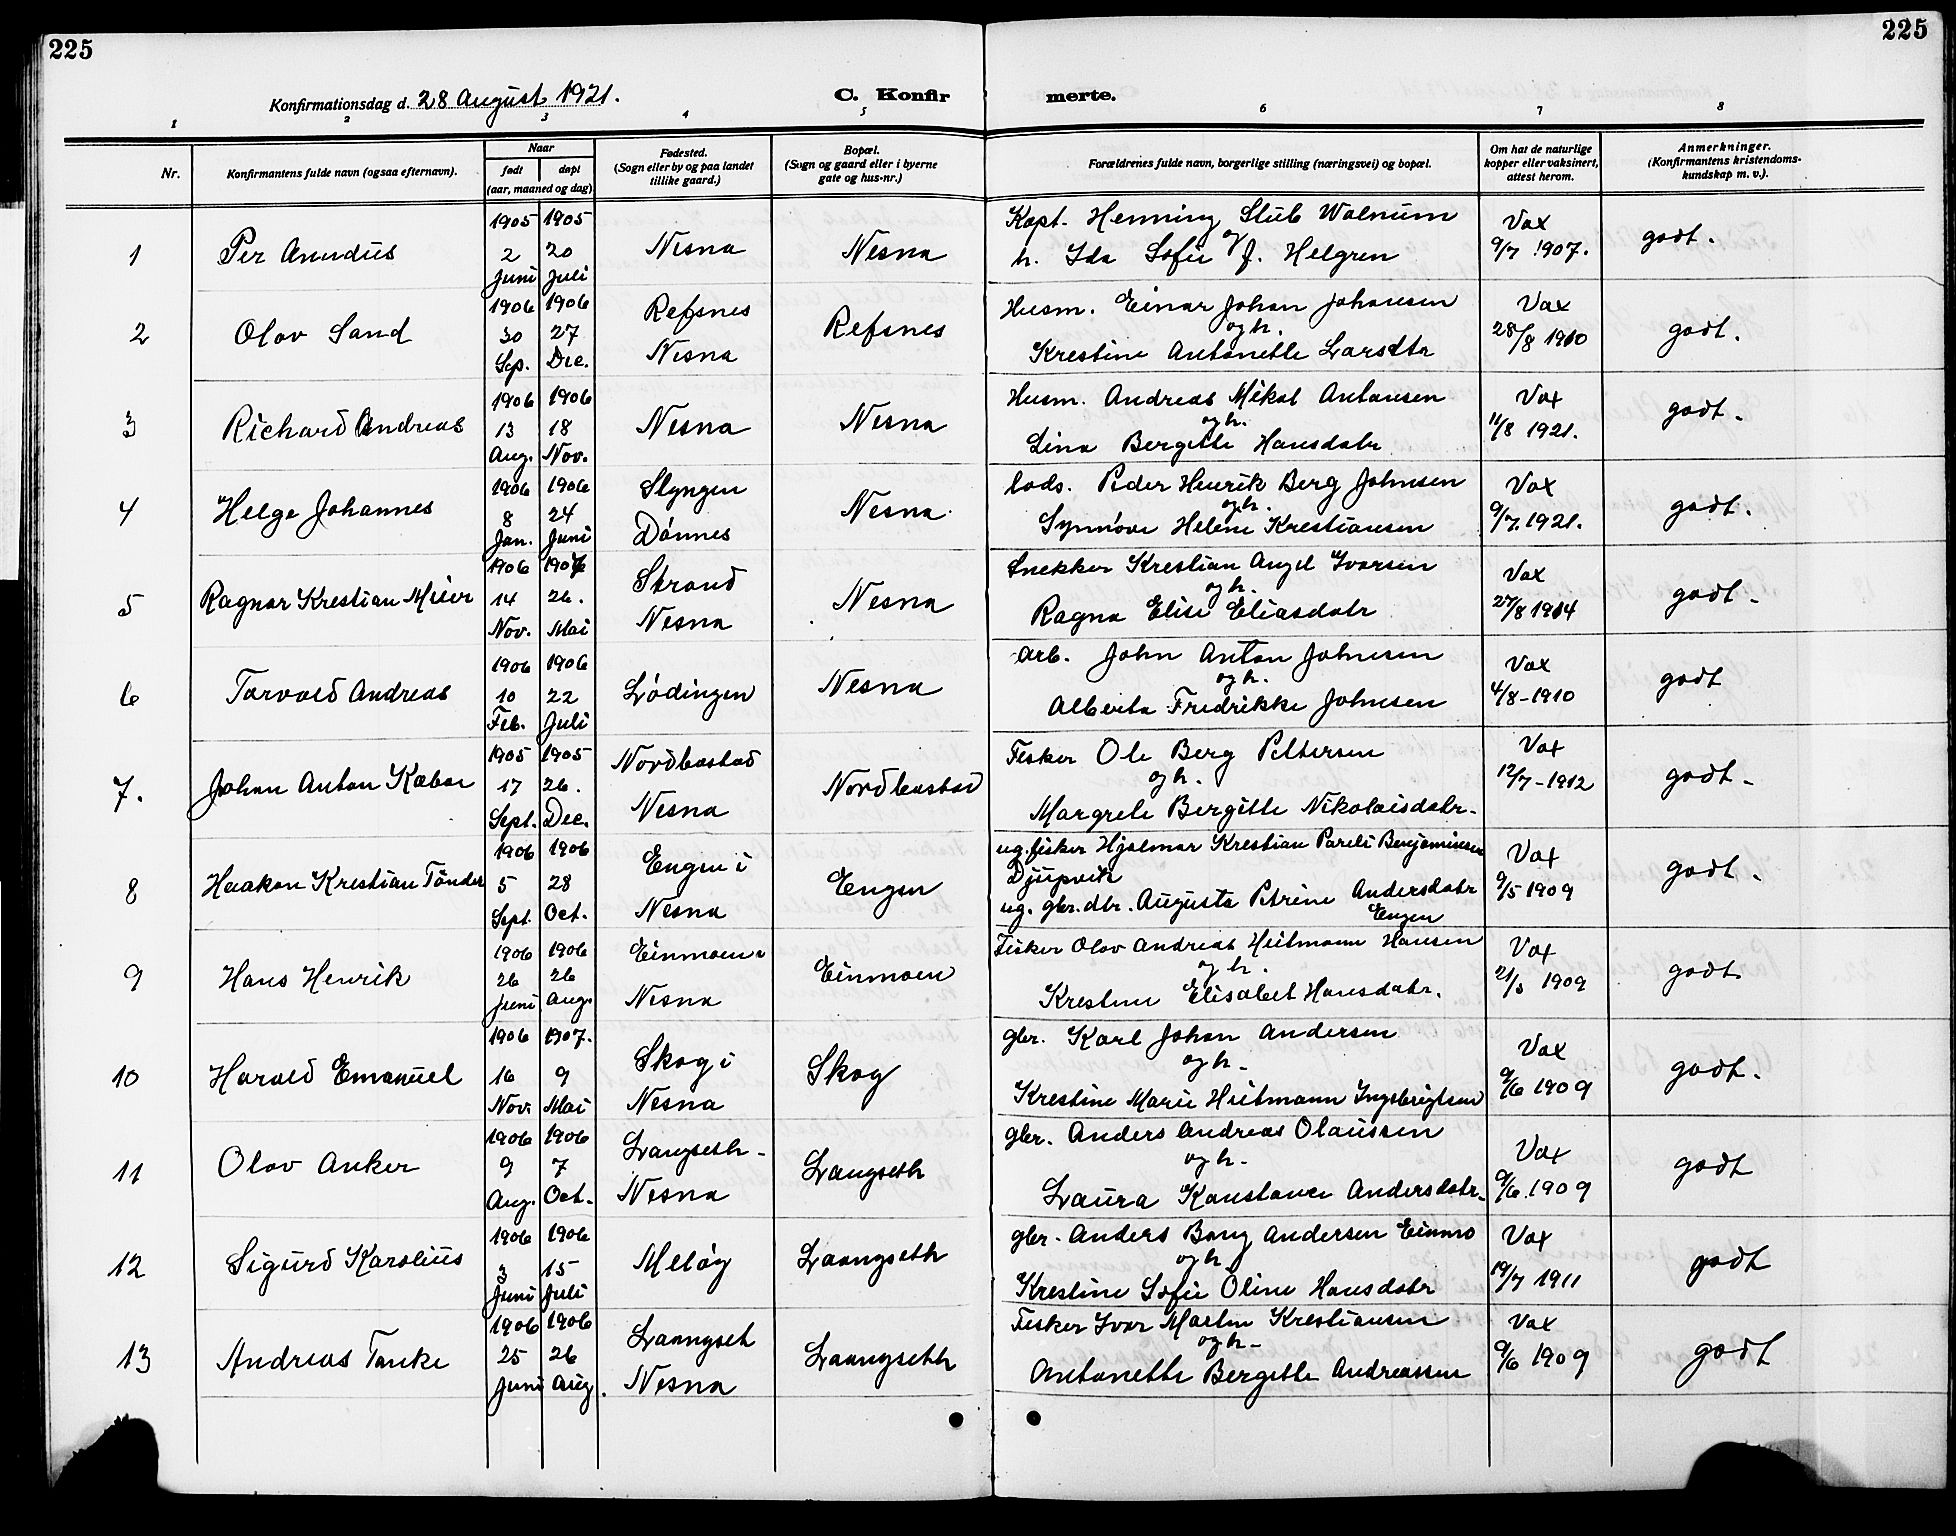 225
225
Konfirmationsdag d. 28 August 1921.
C. Konfir
merte.
1 2 3 4 5 6 7 8
Nr.
Konfirmantens fulde navn (ogsaa efternavn).
Naar
født
døpt
(aar, maaned og dag)
Fødested.
(Sogn eller by og paa landet
tillike gaard.)
Bopæl.
(Sogn og gaard eller i byerne
gate og hus-nr.)
Forældrenes fulde navn, borgerlige stilling (næringsvei) og bopæl.
Om hat de naturlige
kopper eller vaksinert,
attest herom.
Anmerkninger.
(Konfirmantens kristendoms-
kundskap m. v.).
1905 1905 Kapt. Henning Stub Walnum Vax
1 Per Amndus 2 20 Nesna Nesna og godt.
Juni Juli h. Ida Sofie J. Helgren 9/7 1907.
1906 1906 Refsnes Husm. Einar Johan Johansen Vax
2 Olav Sand 30 27 Refsnes og h. 28/8 1910 godt.
Sep. Dec. Nesna Krestine Antonette Larsdtr
1906 1906 Husm. Andreas Mikal Antonsen Vax
3 Richard Andreas 13 18 Nesna Nesna og h. 11/8 1921. godt.
Aug. Nov. Lina Bergitte Hansdatr
1906 1906 Slyngen lods. Peder Henrik Berg Johnsen Vax
4 Helge Johannes 8 24 Nesna og h. 9/7. 1921. godt.
Jan. Juni Dønnes Synnøve Helene Krestiansen
1906 1907 Strand Snekker Krestian Angel Ivarsen Vax
5 Ragnar Krestian Meier 14 26. Nesna og h. 27/8 1914 godt.
Nov. Mai Nesna Ragna Elise Eliasdatr
1906 1906 Arb. John Anton Johnsen Vax
6 Torvald Andreas 10 22 Lødingen Nesna og h. 4/8-1910 godt
Feb. Juli Alberta Fredrikke Johnsen
1905 1905 Nordbastad Fisker Ole Berg Pettersen Vax
7. Johan Anton Kabor 17 26. Nordbastad og h. 12/7-1912 godt.
Sept. Dec. Nesna Margrete Bergitte Nikolaisdatr.
1906 1906 Engen i ug. fisker Hjalmar Krestian Pareli Benjaminsen Vax
8 Haakon Krestian Tønder 5 28 Engen Djupvik 9/5 1909 godt.
Sept. Oct. Nesna ug. gbr. dtr. Augusta Petrine Andersdatr
Engen
1906 1906 Einmoen Fisker Olav Andreas Heitmann Hansen Vax
9 Hans Henrik 26 26 Einmoen og h. godt
Juni Aug. Nesna Krestine Elisabet Hansdatr. 1909
1906 1907. Skog i gbr. Karl Johan Andersen Vax
10 Harald Emanuel 16 9 Skog og h. 9/6 1909 godt.
Nov. Mai Nesna Krestine Marie Heitmann Ingebrigtsen
1906 1906 Langseth gbr. Anders Andreas Olaussen Vax
11 Olav Anker 9 7 Langseth og h. 9/6. 1909 godt
Aug. Oct. Nesna Laura Konstance Andersdatr.
1906 1906 gbr. Anders Bang Andersen Einmo Vax
12 Sigurd Karolius 3 15 Meløy Laangseth og h. 19/7 1911 godt
Juni Juli Krestine Sofie Oline Hansdatr
1906 1906 Laangset Fisker Ivar Martin Krestiansen Vax
13 Andreas Tanke 25 26 Laangseth og h. 9/6 1909 godt
Juni Aug. Nesna Antonette Bergette Andreassen